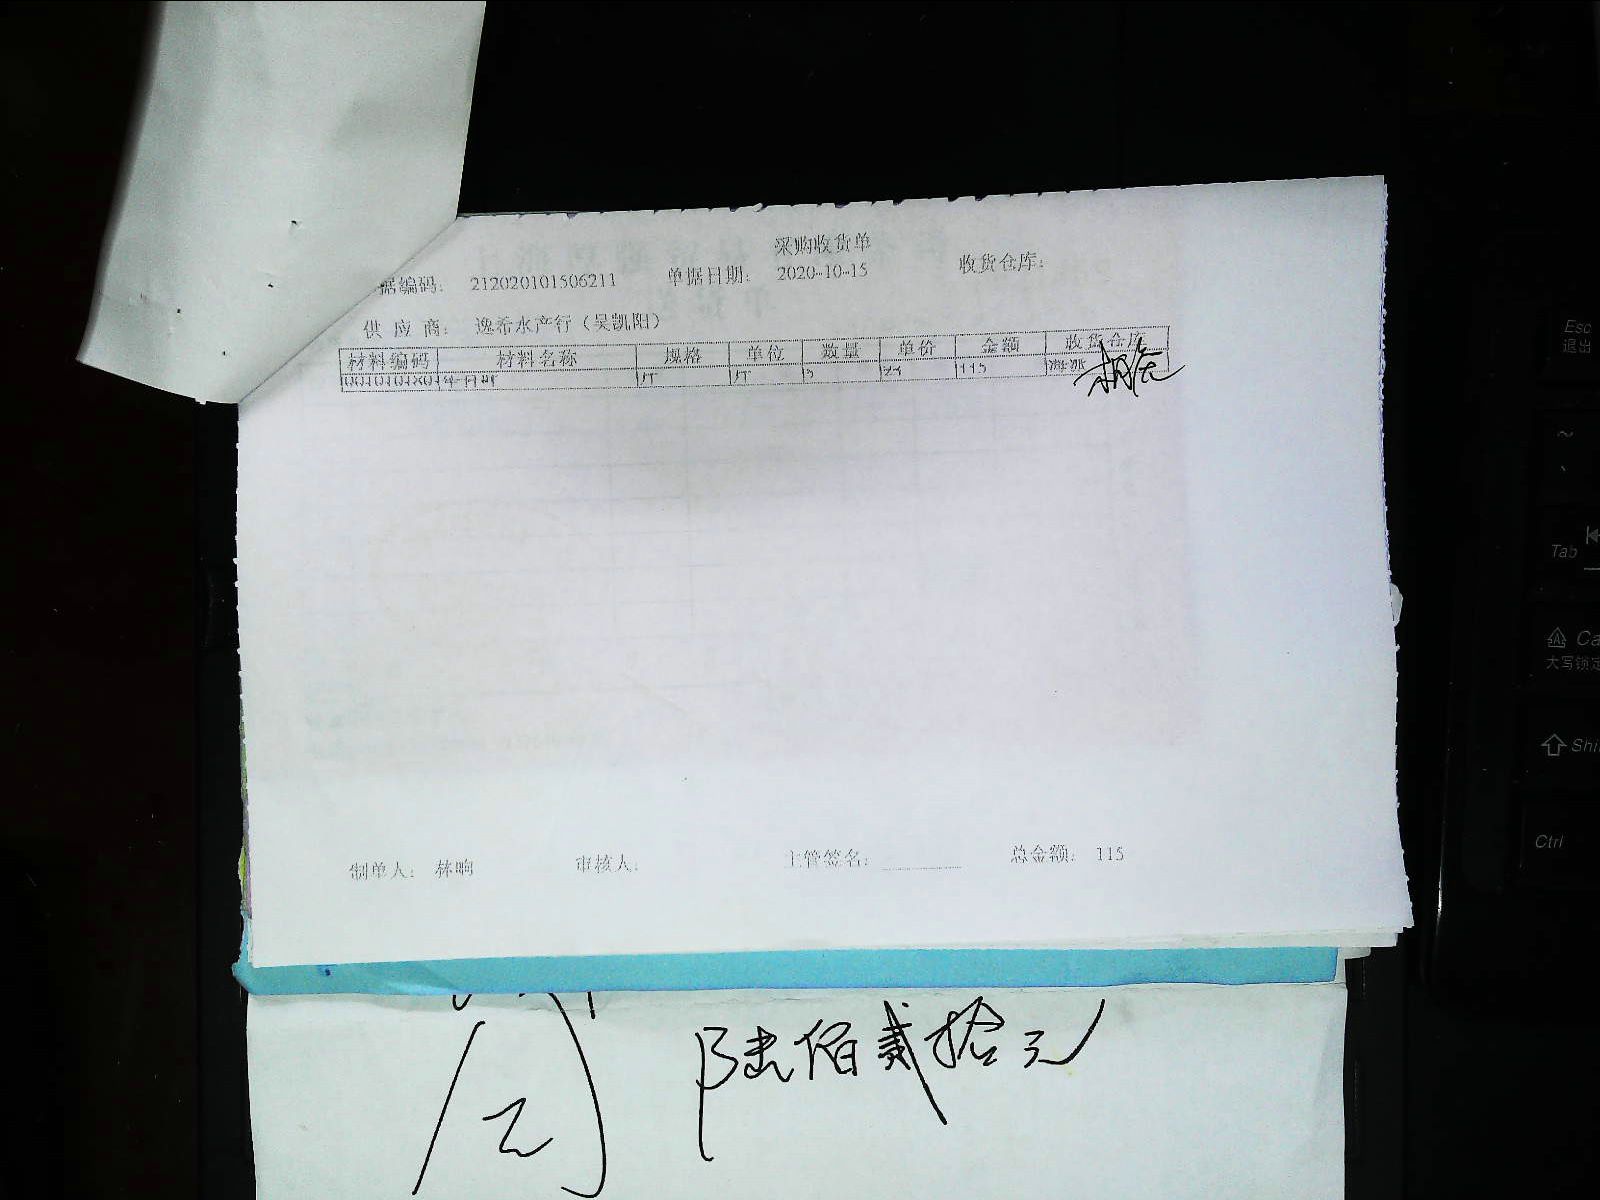 采购收货单
据编码: 212020101506211 单据日期: 2020-10-15 收货仓库:
供应商: 逸希水产行（吴凯阳）
材料编码 材料名称 规格 单位 数量 单价 金额 收货仓库
115
制单人: 林响 审核人: 主管签名: 总金额: 115
陆佰贰拾元
Esc
退出
~
Tab
Ca
大写锁定
Shi
Ctrl